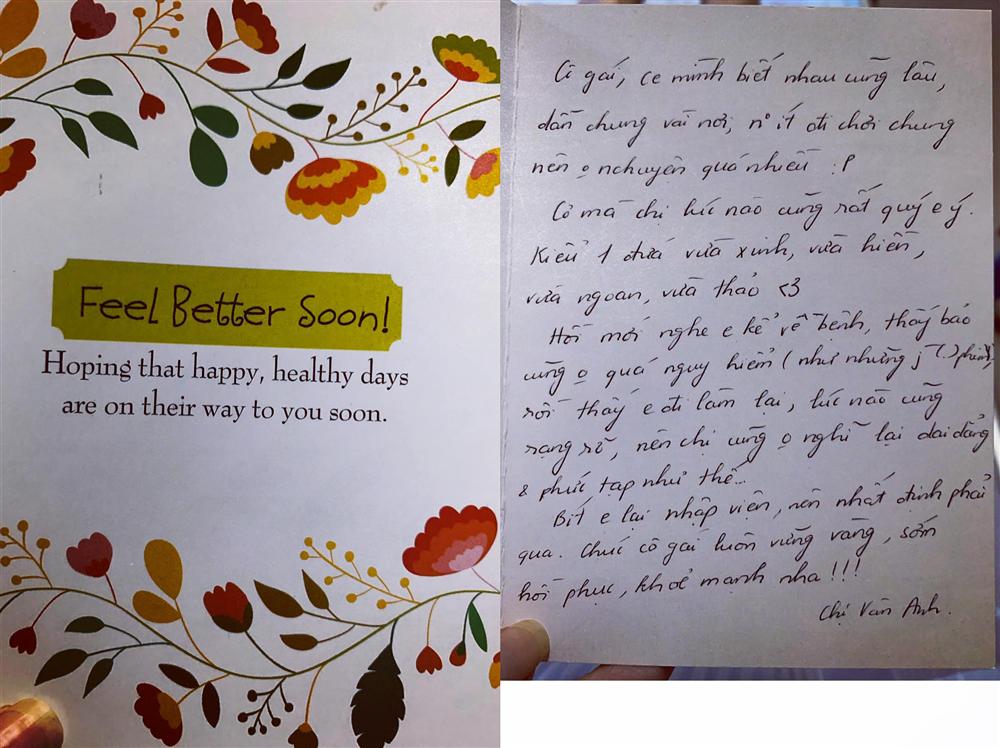 Feel Better Soon!
Hoping that happy, healthy days
are on their way to you soon.
Cô gái, ce mình biết nhau cũng lâu,
dẫn chung vài nơi, n° ít đi chơi chung
nên o nchuyện quá nhiều :P
Cơ mà chị lúc nào cũng rất quý e ý.
Kiểu 1 đứa vừa xinh, vừa hiền,
vừa ngoan, vừa thảo <3
Hồi mới nghe e kể về bệnh, thấy bảo
cũng o quá nguy hiểm (như những j
rồi thấy e đi làm lại, lúc nào cũng
rạng rỡ, nên chị cũng o nghĩ lại dai dẳng
& phức tạp như thế...
Biết e lại nhập viện, nên nhất định phải
qua. Chúc cô gái luôn vững vàng, sớm
hồi phục, khoẻ mạnh nha!!!
Chị Vân Anh.